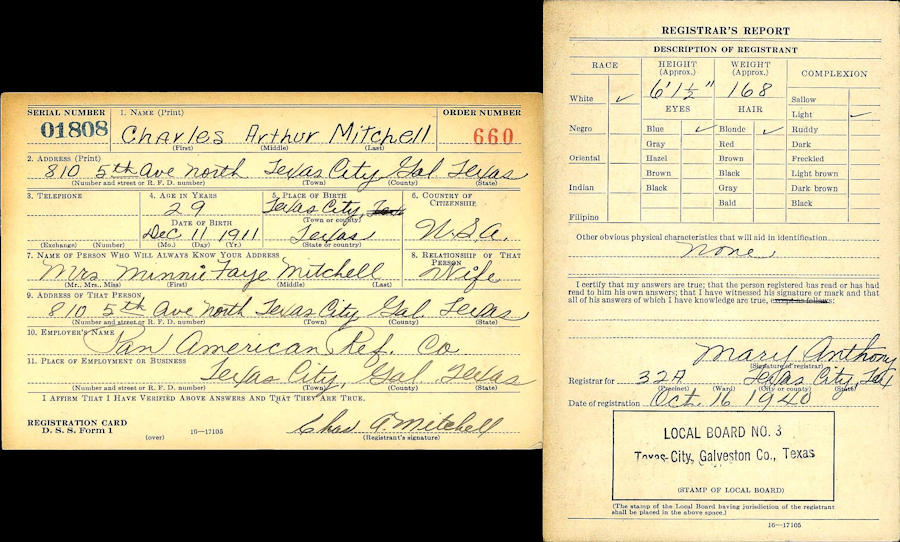 SERIAL NUMBER 1. NAME (Print) ORDER NUMBER
01808 Charles Arthur Mitchell 660
(First) (Middle) (Last)
2. ADDRESS (Print)
810 5th Ave North Texas City Gal. Texas
(Number and street or R. F. D. number) (Town) (County) (State)
3. TELEPHONE 4. AGE IN YEARS 5. PLACE OF BIRTH 6. COUNTRY OF CITIZENSHIP
29 Texas City,
(Town or county)
DATE OF BIRTH
Dec 11 1911 Texas U.S.A.
(Exchange) (Number) (Mo.) (Day) (Yr.) (State or country)
7. NAME OF PERSON WHO WILL ALWAYS KNOW YOUR ADDRESS 8. RELATIONSHIP OF THAT PERSON
Mrs Minnie Faye Mitchell Wife
(Mr., Mrs., Miss) (First) (Middle) (Last)
9. ADDRESS OF THAT PERSON
810 5th Ave North Texas City Gal. Texas
(Number and street or R. F. D. number) (Town) (County) (State)
10. EMPLOYER'S NAME
Pan American Ref. Co
11. PLACE OF EMPLOYMENT OR BUSINESS
Texas City, Gal. Texas
(Number and street or R. F. D. number) (Town) (County) (State)
I AFFIRM THAT I HAVE VERIFIED ABOVE ANSWERS AND THAT THEY ARE TRUE.
Chas A Mitchell
REGISTRATION CARD
D. S. S. Form 1 (over) 16—17105 (Registrant's signature)
REGISTRAR'S REPORT
DESCRIPTION OF REGISTRANT
RACE HEIGHT (Approx.) WEIGHT (Approx.) COMPLEXION
White ✓ 6' 1½" 168 Sallow
EYES HAIR Light ✓
Negro Blue ✓ Blonde ✓ Ruddy
Gray Red Dark
Oriental Hazel Brown Freckled
Brown Black Light brown
Indian Black Gray Dark brown
Bald Black
Filipino
Other obvious physical characteristics that will aid in identification
None
I certify that my answers are true; that the person registered has read or has had
read to him his own answers; that I have witnessed his signature or mark and that
all of his answers of which I have knowledge are true, except as follows:
Mary Anthony
(Signature of registrar)
Registrar for 32A Texas City, Tex
(Precinct) (Ward) (City or county) (State)
Date of registration Oct. 16 1940
LOCAL BOARD NO. 3
Texas City, Galveston Co., Texas
(STAMP OF LOCAL BOARD)
(The stamp of the Local Board having jurisdiction of the registrant
shall be placed in the above space.)
16—17105